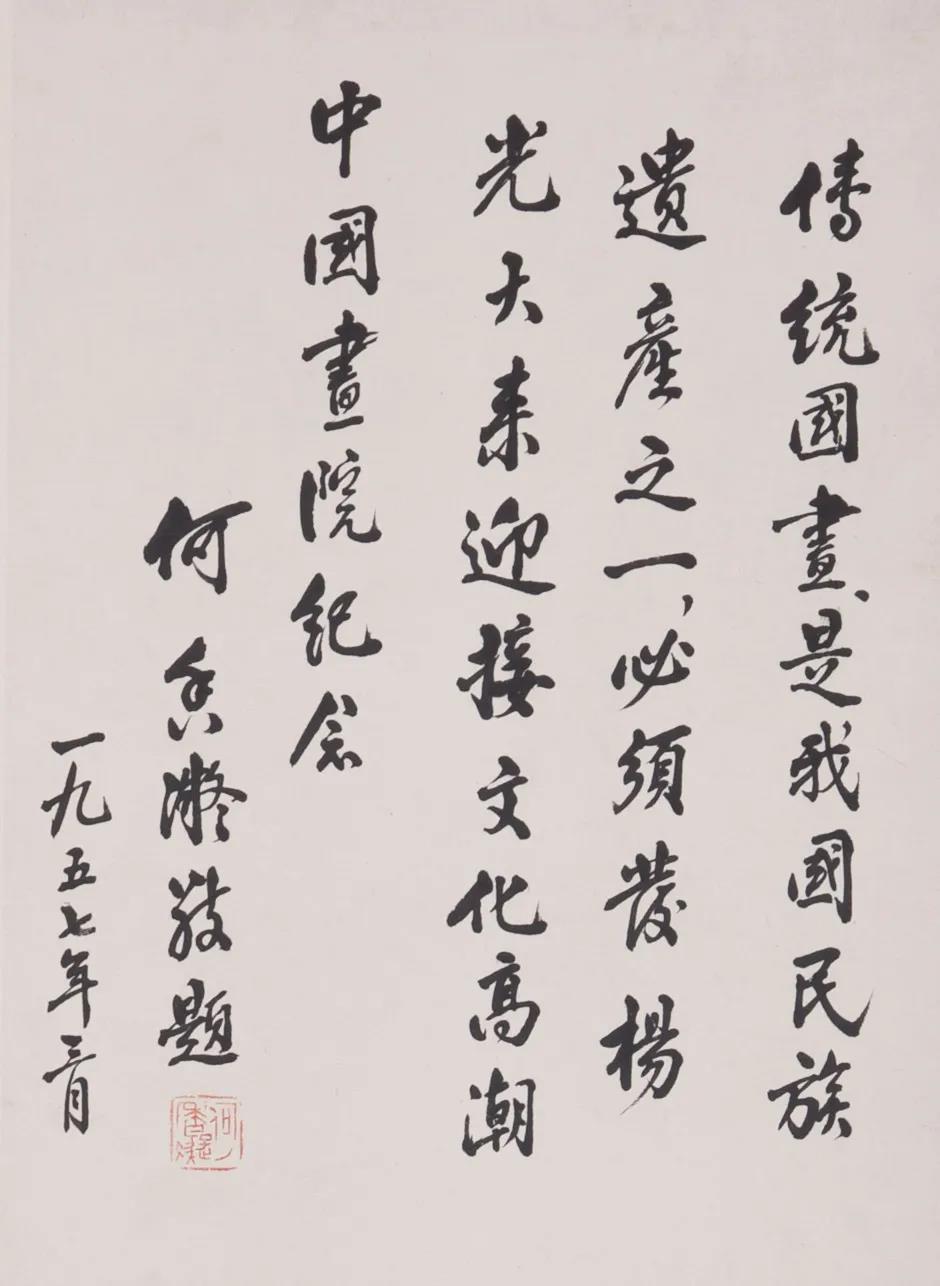 傳統國畫、是我國民族
遺產之一，必須發楊
光大来迎接文化高潮
中國畫院紀念
何香凝敬題
一九五七年三月
何香凝